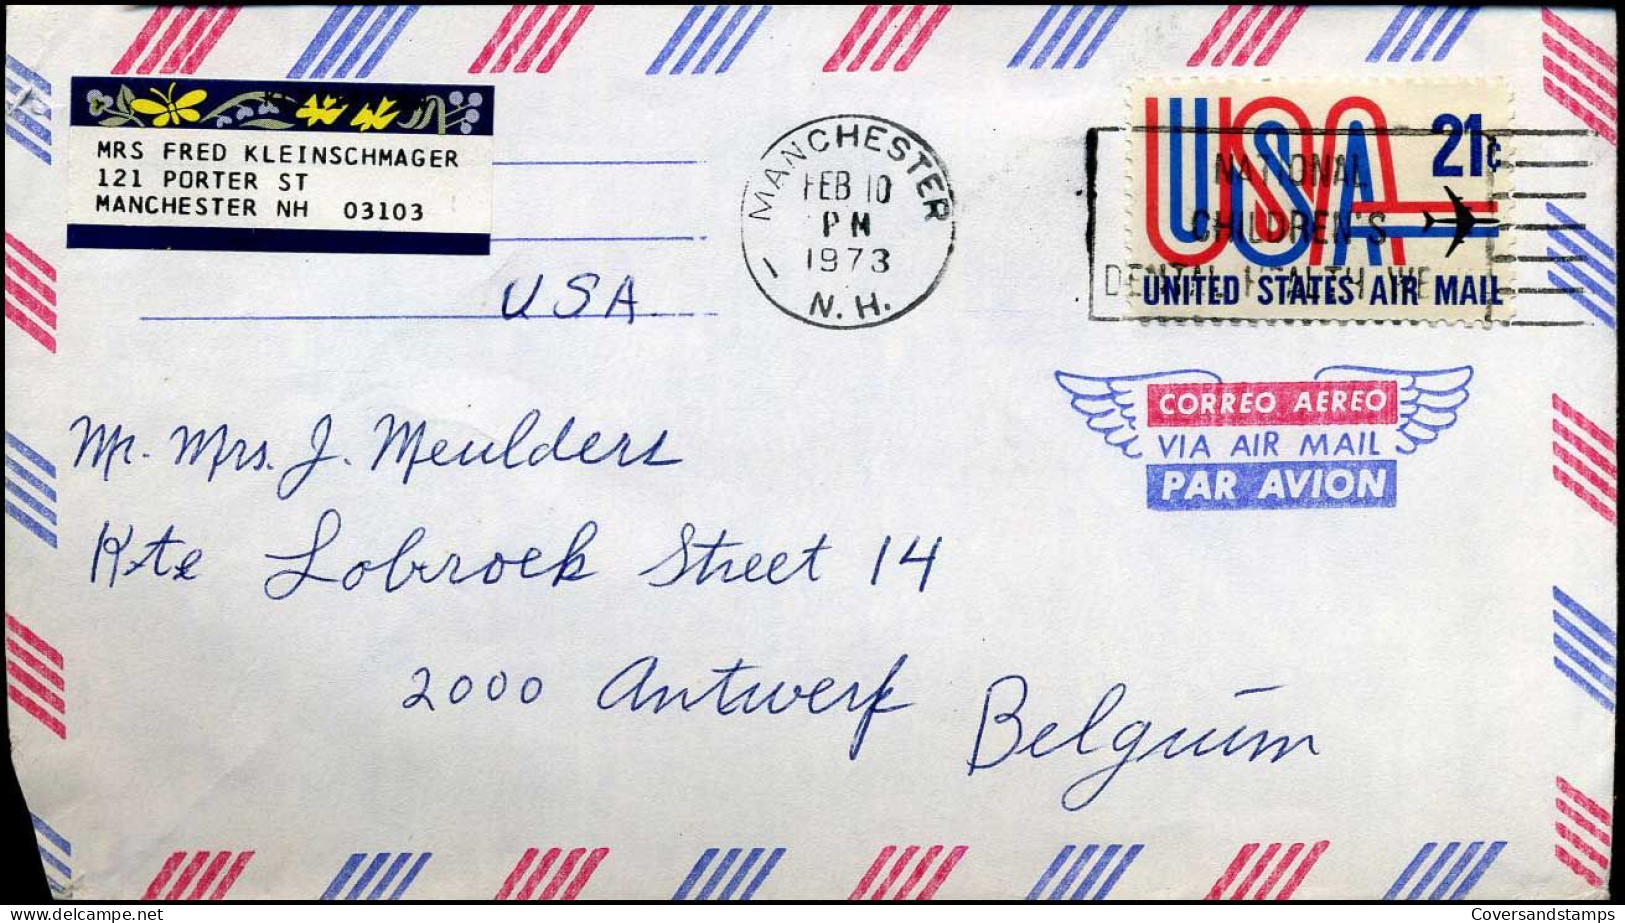 MRS FRED KLEINSCHMAGER
121 PORTER ST
MANCHESTER NH 03103
USA
MANCHESTER
FEB 10
PM
1973
N.H.
USA 21c
UNITED STATES AIR MAIL
NATIONAL
CHILDREN'S
DENTAL HEALTH WE
CORREO AEREO
VIA AIR MAIL
PAR AVION
Mr. Mrs. J. Meulders
Kte Lobroek Street 14
2000 Antwerf
Belgium
https://www.delcampe.net
Coversandstamps